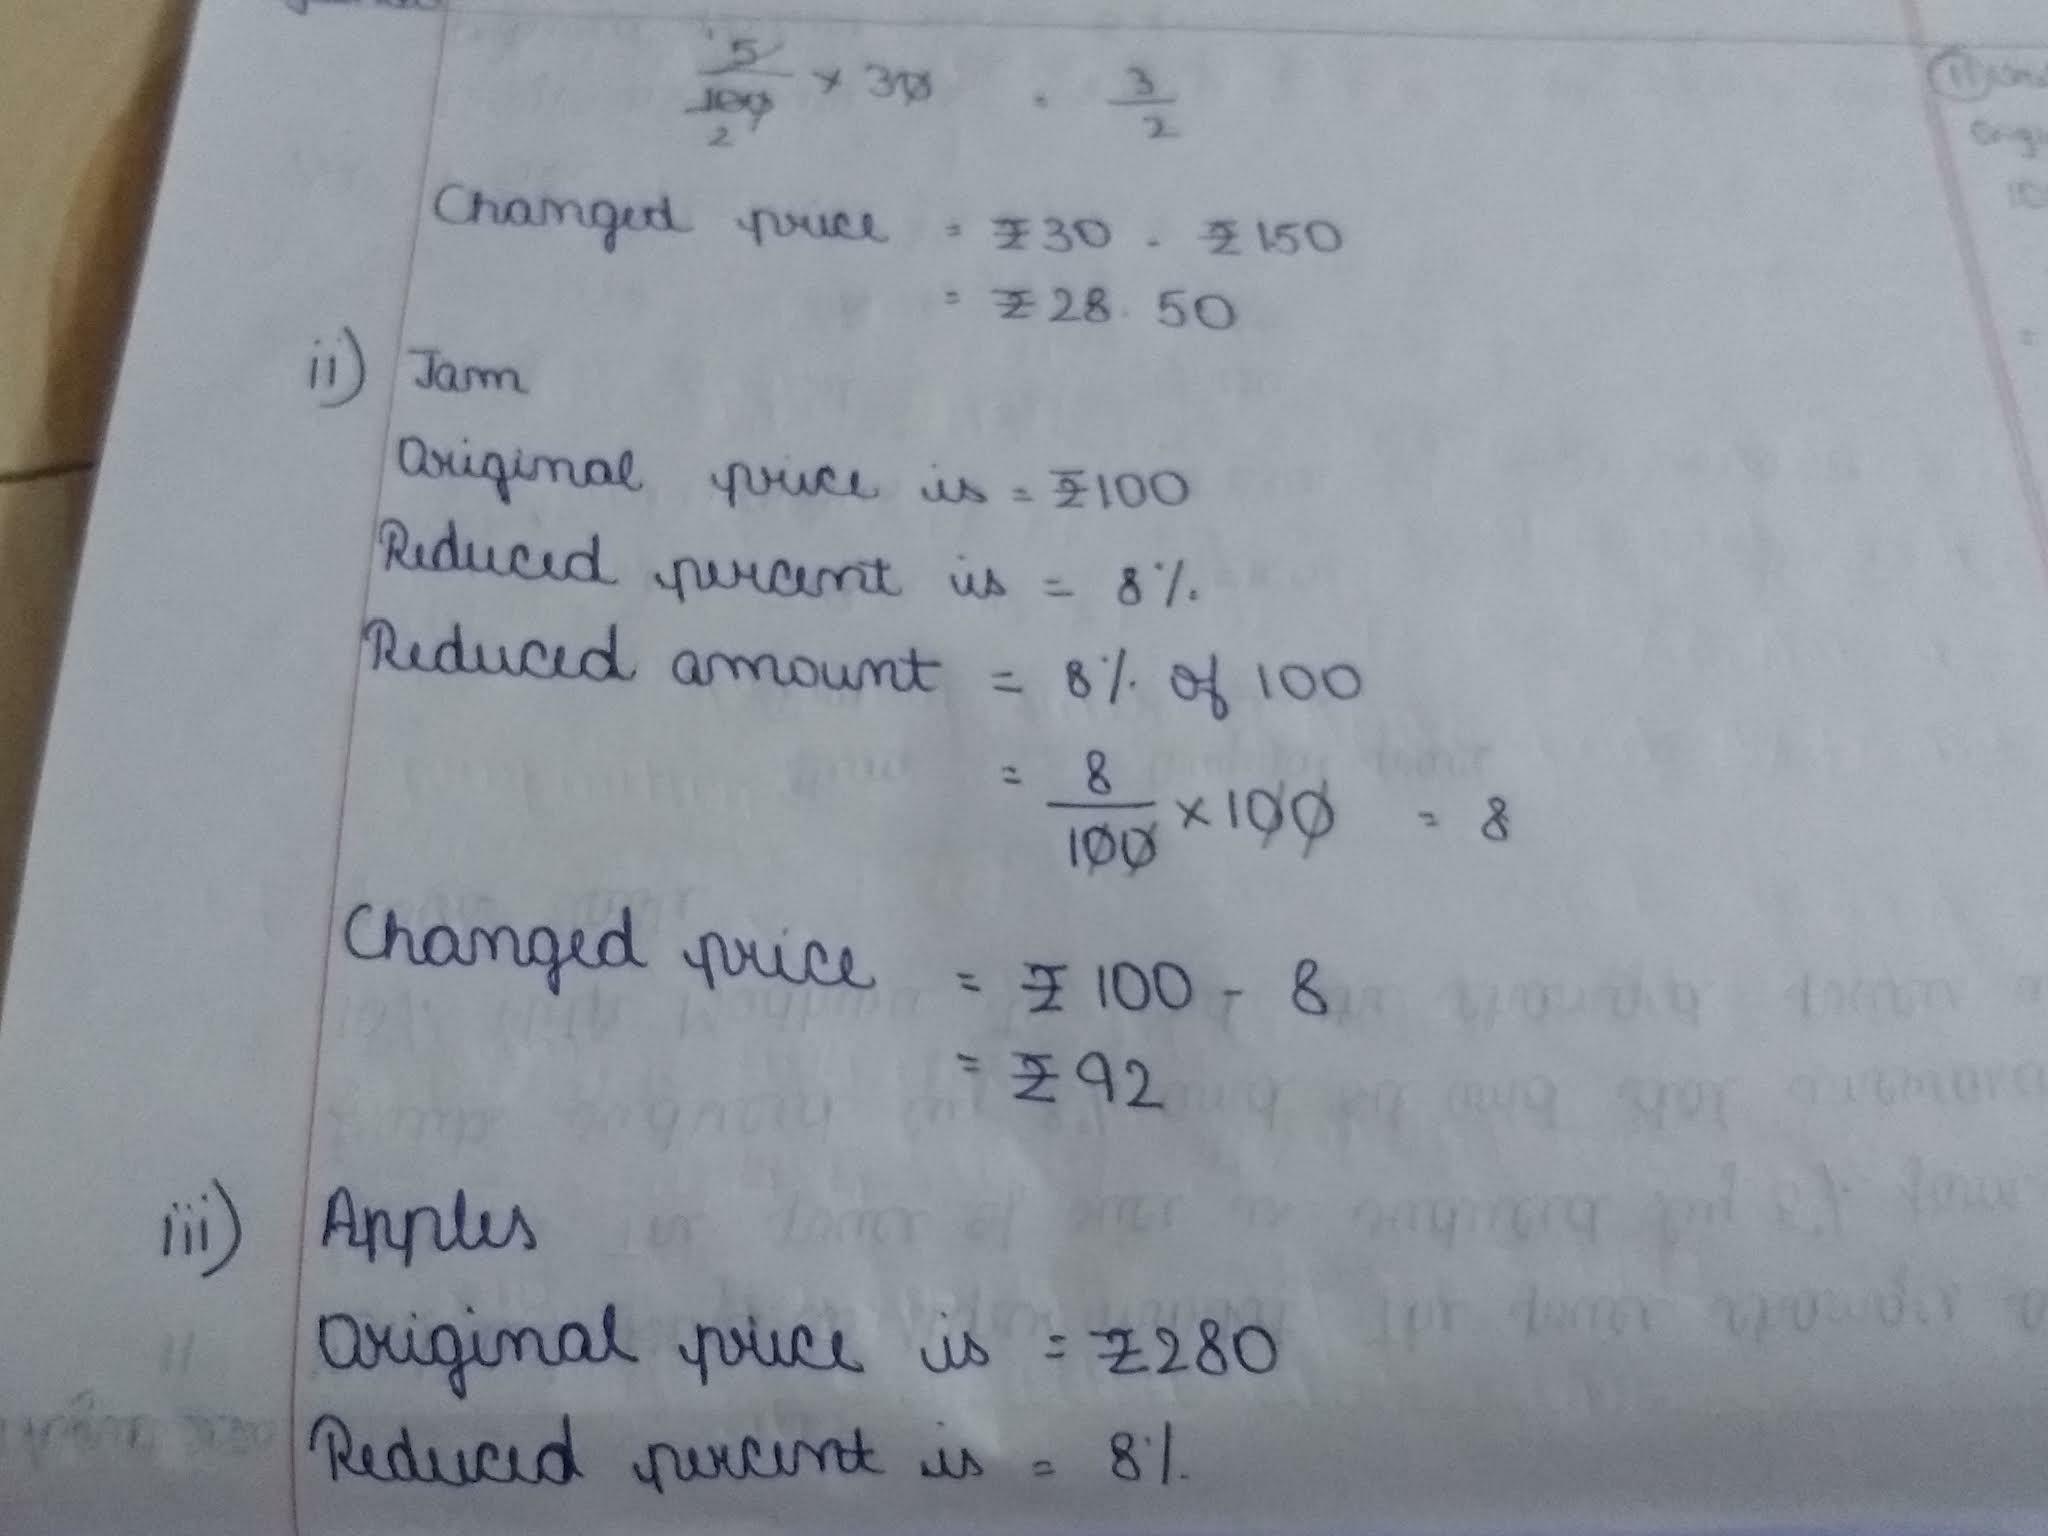 5/100 × 30 = 3/2
2
Changed price = ₹30 - ₹150
= ₹28.50
ii) Jam
Original price is = ₹100
Reduced percent is = 8%
Reduced amount = 8% of 100
= 8/100 × 100 = 8
Changed price = ₹100 - 8
= ₹92
iii) Apples
Original price is = ₹280
Reduced percent is = 8%